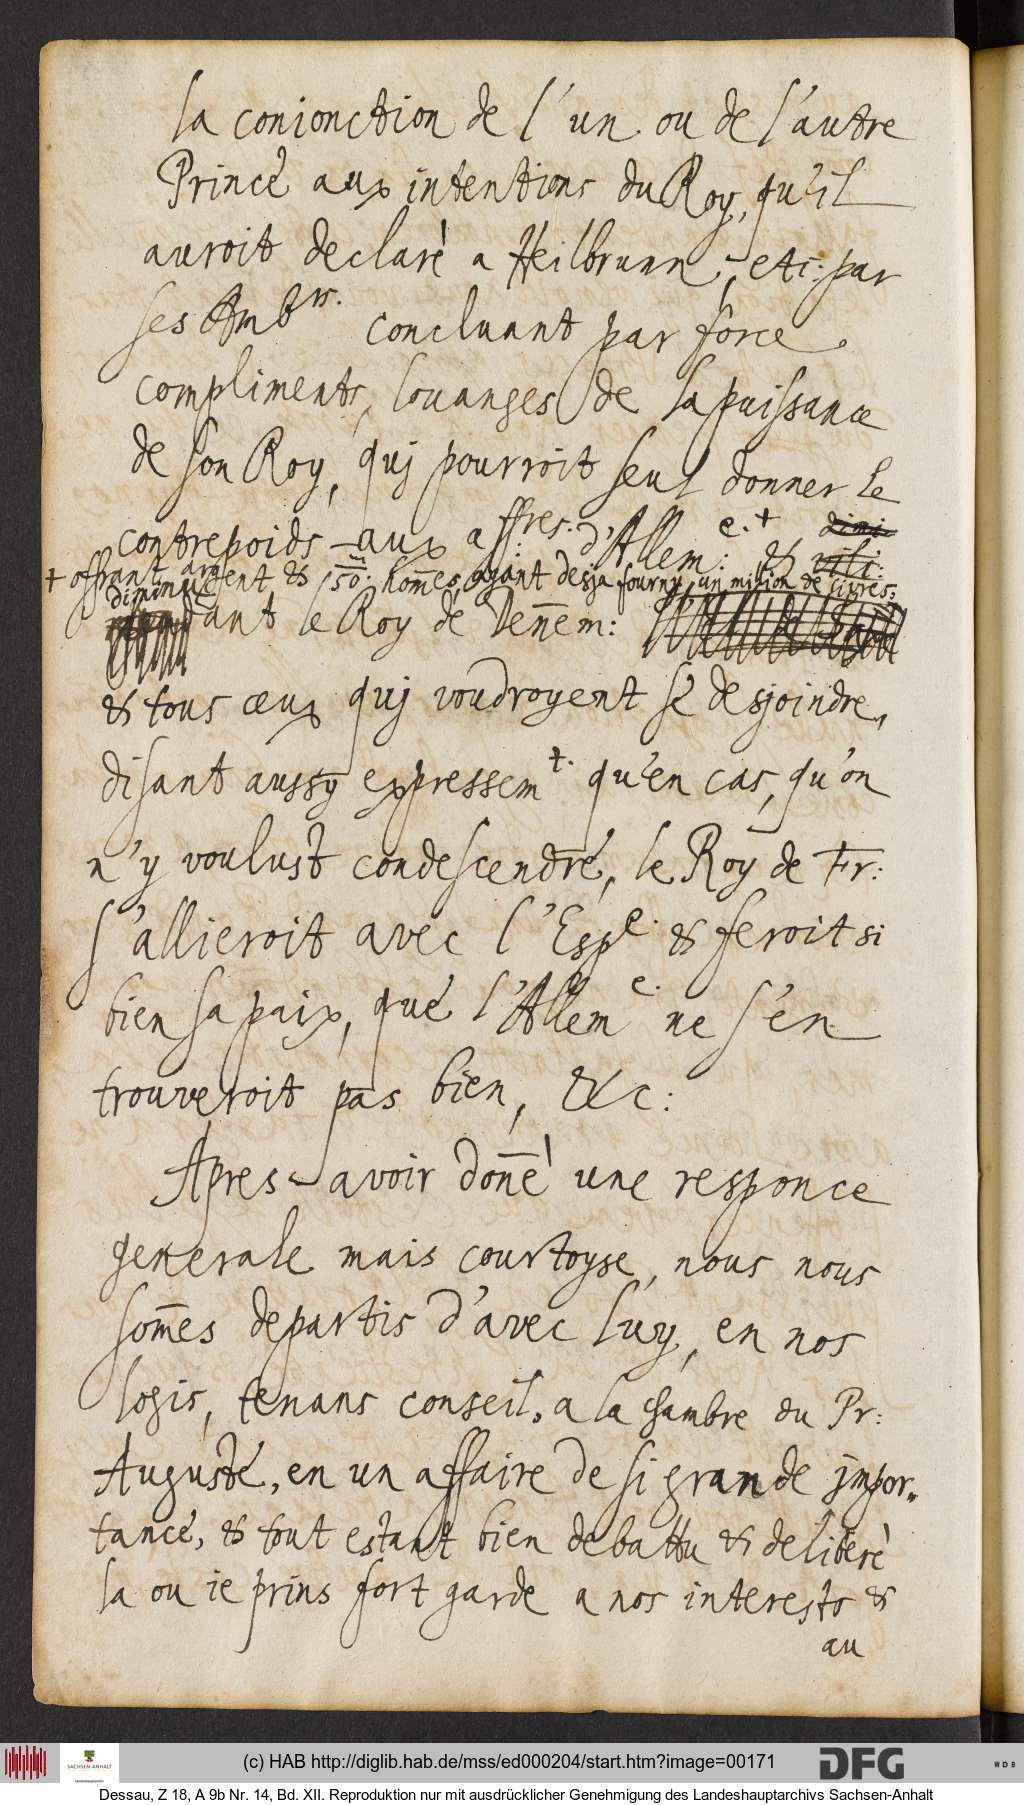 la conionction de l'un ou de l'autre
Prince aux intentions du Roy, qu'il
auroit declarè a Heilbrunn, etc: par
ses Amb.rs concluant par force
compliments, louanges de la puissance
de son Roy, quj pourroit seul donner le
contrepoids aux aff.res d'Allem:e. + & vili:
+ offrant argent & 150.m hom̄es, ayant desja fourny, un milion de livres:
diminu
dant le Roy de Den̄em:
& tous ceux quj voudroyent se desjoindre,
disant aussy expressem.t qu'en cas, qu'on
n'y voulust condescendre, le Roy de Fr:
s'allieroit avec l'Esp.e & feroit si
bien sa paix, que l'Allem.e ne s'en
trouveroit pas bien, &c:
Apres avoir don̄è une responce
generale mais courtoyse, nous nous
som̄es departis d'avec luy, en nos
logis, tenans conseil, a la chambre du Pr:
Auguste, en un affaire de si grande jmpor„
tance, & tout estant bien debattu & deliberè
la ou ie prins fort garde a nos interests &
au
(c) HAB http://diglib.hab.de/mss/ed000204/start.htm?image=00171
SACHSEN-ANHALT
DFG
WDB
Dessau, Z 18, A 9b Nr. 14, Bd. XII. Reproduktion nur mit ausdrücklicher Genehmigung des Landeshauptarchivs Sachsen-Anhalt